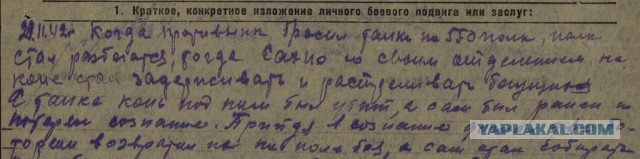 1. Краткое, конкретное изложение личного боевого подвига или заслуг:
Когда противник бросил танки на полк, полк
стал разбегаться, тогда Сахно со своим отделением на
коне стал задерживать и расстреливать бегущих
С танка конь под ним был убит, а сам был ранен и
потерял сознание. Придя в сознание
возвратил на поле боя, а сам стал собирать
YAPLAKAL.COM